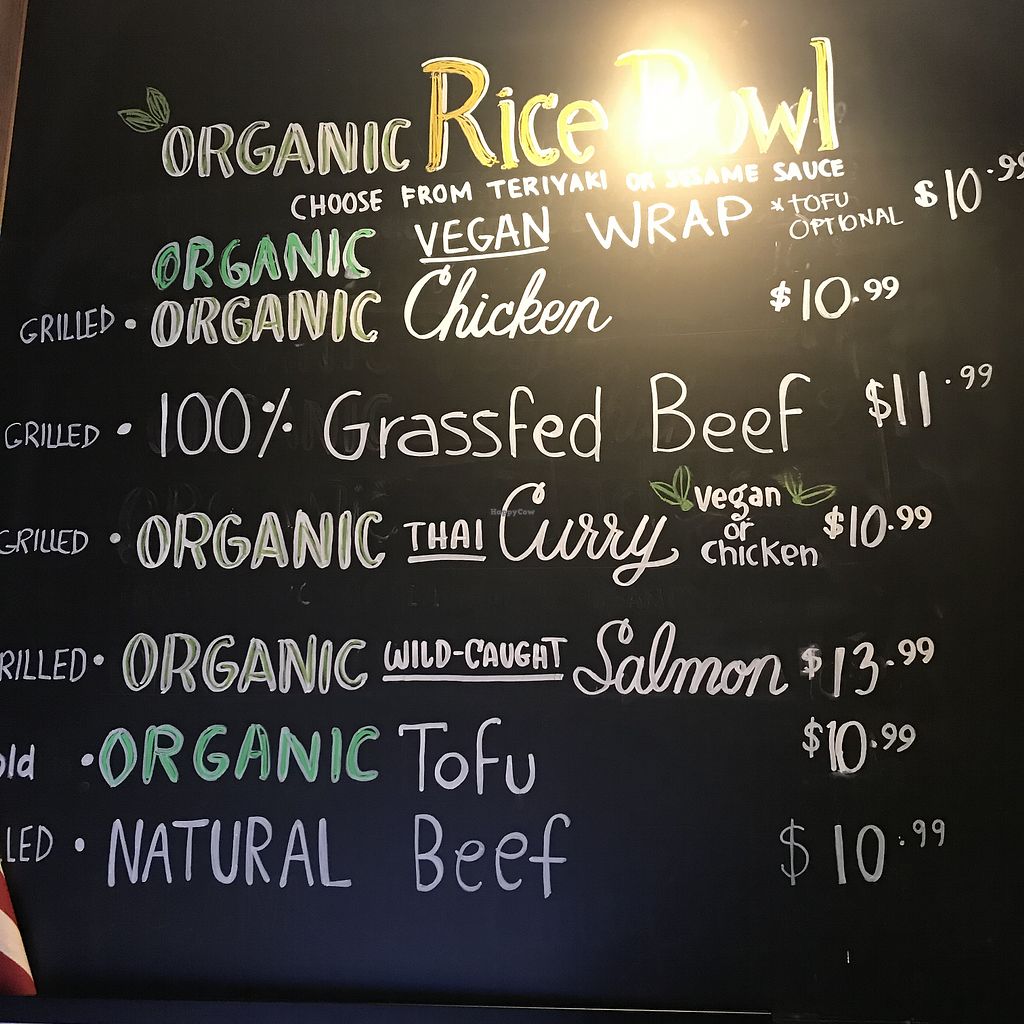 ORGANIC Rice Bowl
CHOOSE FROM TERIYAKI OR SESAME SAUCE
ORGANIC VEGAN WRAP *TOFU OPTIONAL $10.99
GRILLED • ORGANIC Chicken $10.99
GRILLED • 100% Grassfed Beef $11.99
GRILLED • ORGANIC THAI Curry vegan or chicken $10.99
RILLED • ORGANIC WILD-CAUGHT Salmon $13.99
old • ORGANIC Tofu $10.99
LLED • NATURAL Beef $10.99
HappyCow